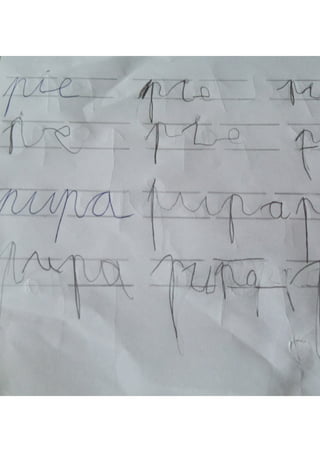 pie pie
pie pie
pupa pupa p
pupa pupa